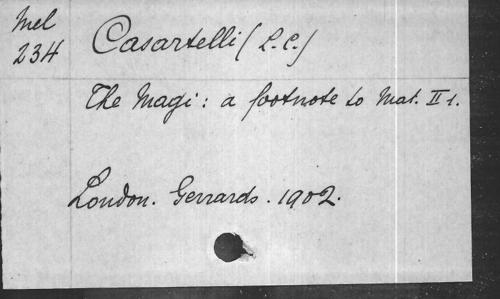 Mel
234
Casartelli (L.C.)
The Magi: a footnote to Mat. II 1.
London. Gerrards. 1902.